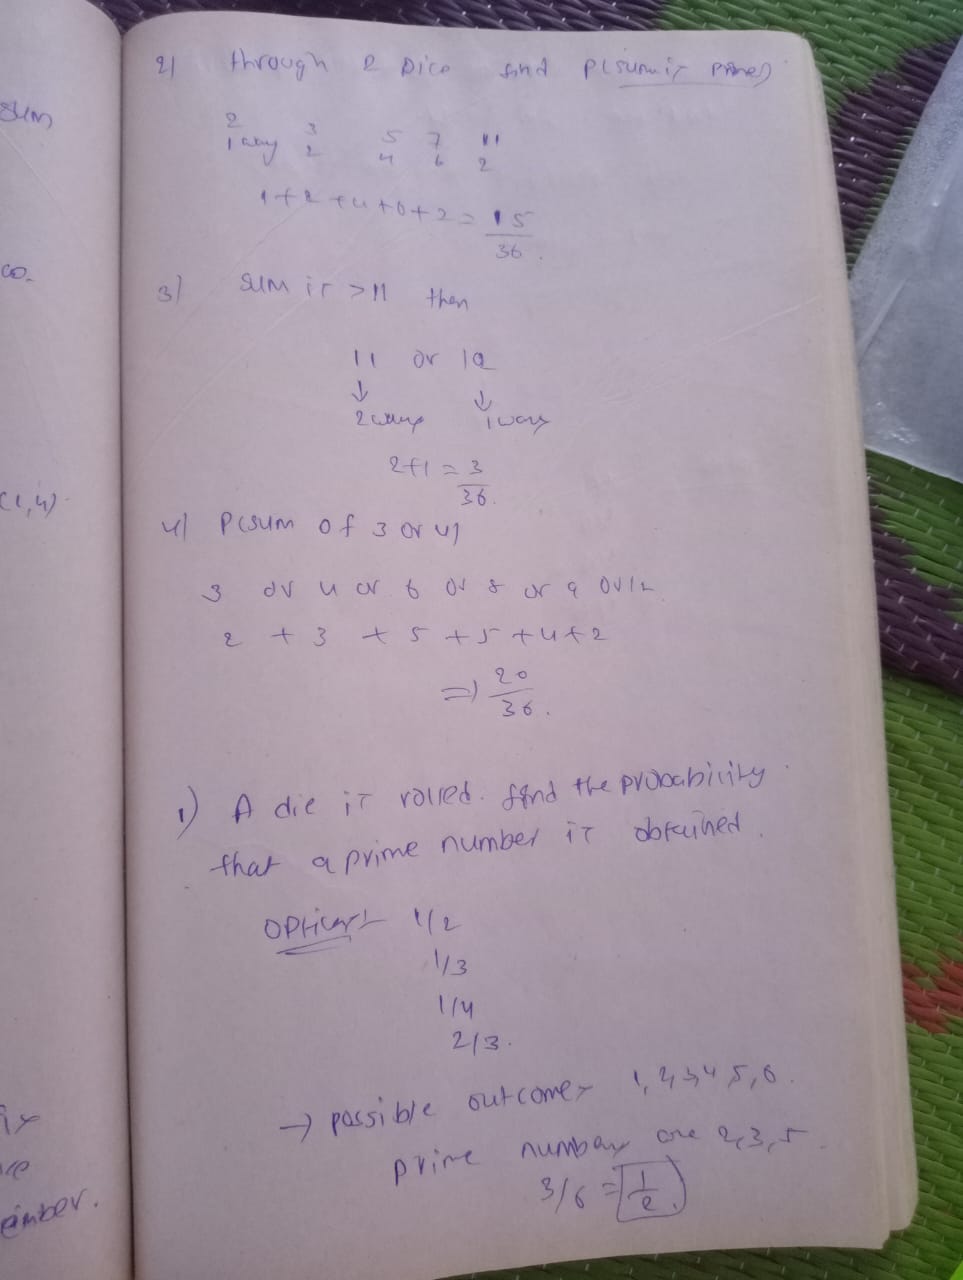 sum
co.
(1,4)
ember.
2) through 2 Dice find P(sum is prime)
2 3 5 7 11
1 way 2 4 6 2
1+2+4+6+2 = 15
36.
3) sum is >11 then
11 or 12
↓ ↓
2 ways 1 way
2+1 = 3
36.
4) P(sum of 3 or 4)
3 or 4 or 6 or 8 or 9 or 12
2 + 3 + 5 + 5 + 4 + 2
=) 20
36.
1) A die is rolled. find the probability
that a prime number is obtained.
options 1/2
1/3
1/4
2/3.
→ possible outcomes 1, 2, 3, 4 5, 6.
prime numbers are 2, 3, 5.
3/6 = 1/2.